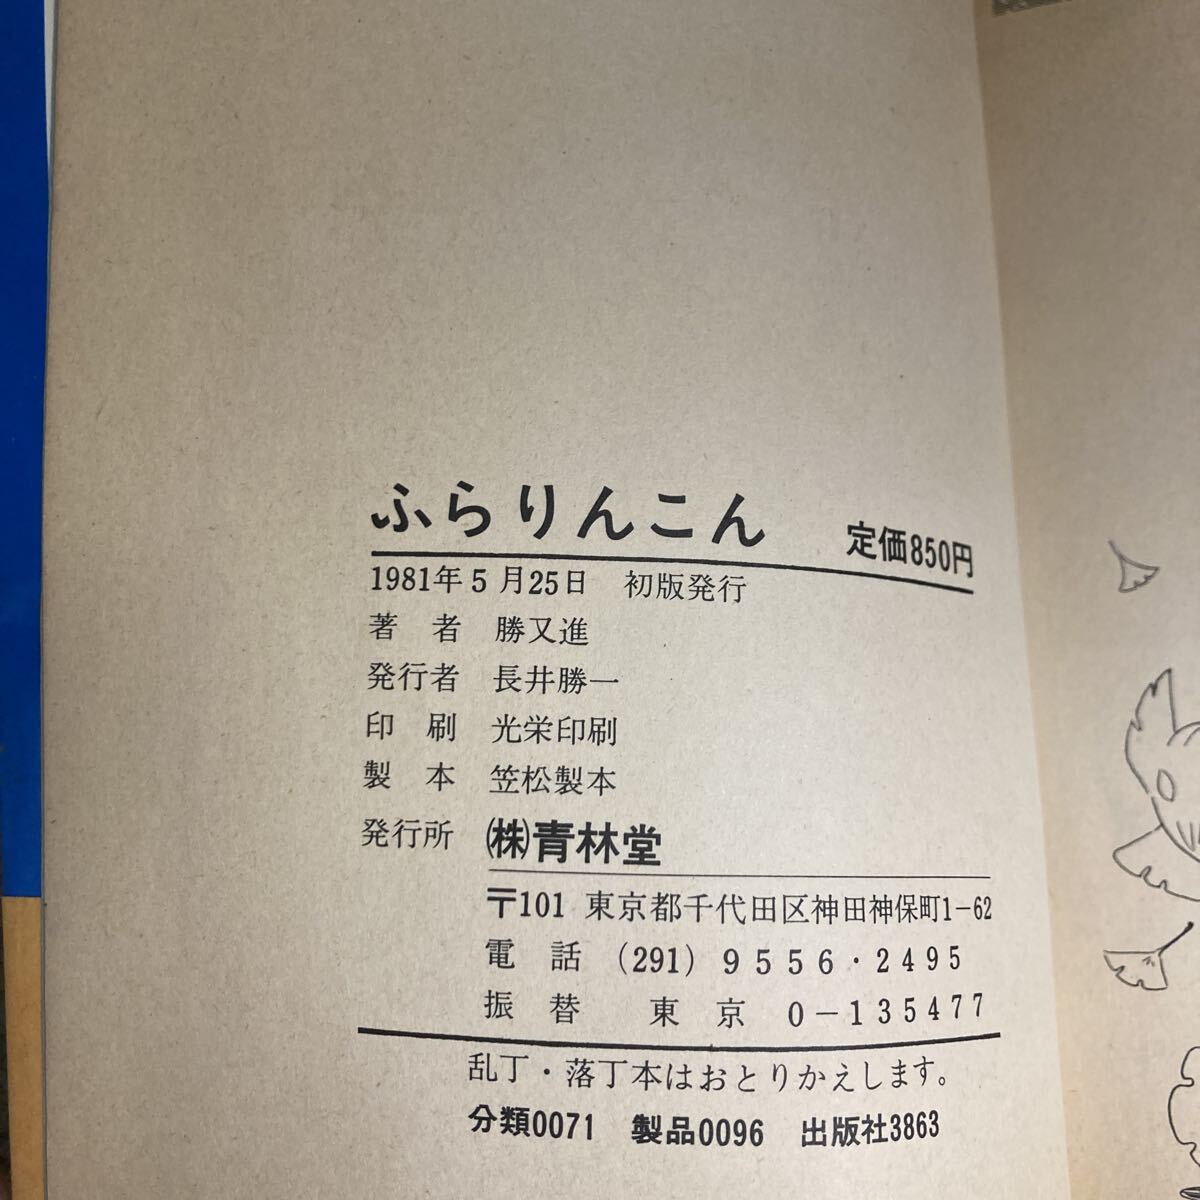 ふらりんこん 定価850円
1981年5月25日 初版発行
著者 勝又進
発行者 長井勝一
印刷 光栄印刷
製本 笠松製本
発行所 ㈱青林堂
〒101 東京都千代田区神田神保町1-62
電話 (291) 9556・2495
振替 東京 0-135477
乱丁・落丁本はおとりかえします。
分類0071 製品0096 出版社3863